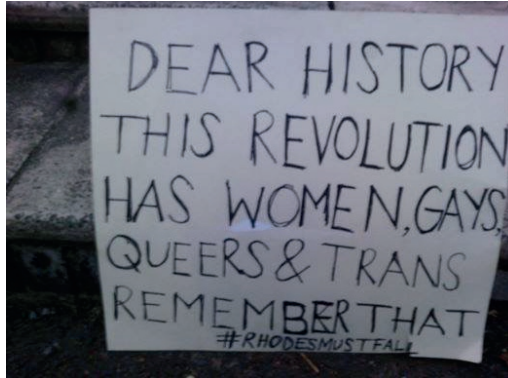 DEAR HISTORY
THIS REVOLUTION
HAS WOMEN, GAYS,
QUEERS & TRANS
REMEMBER THAT
#RHODESMUSTFALL